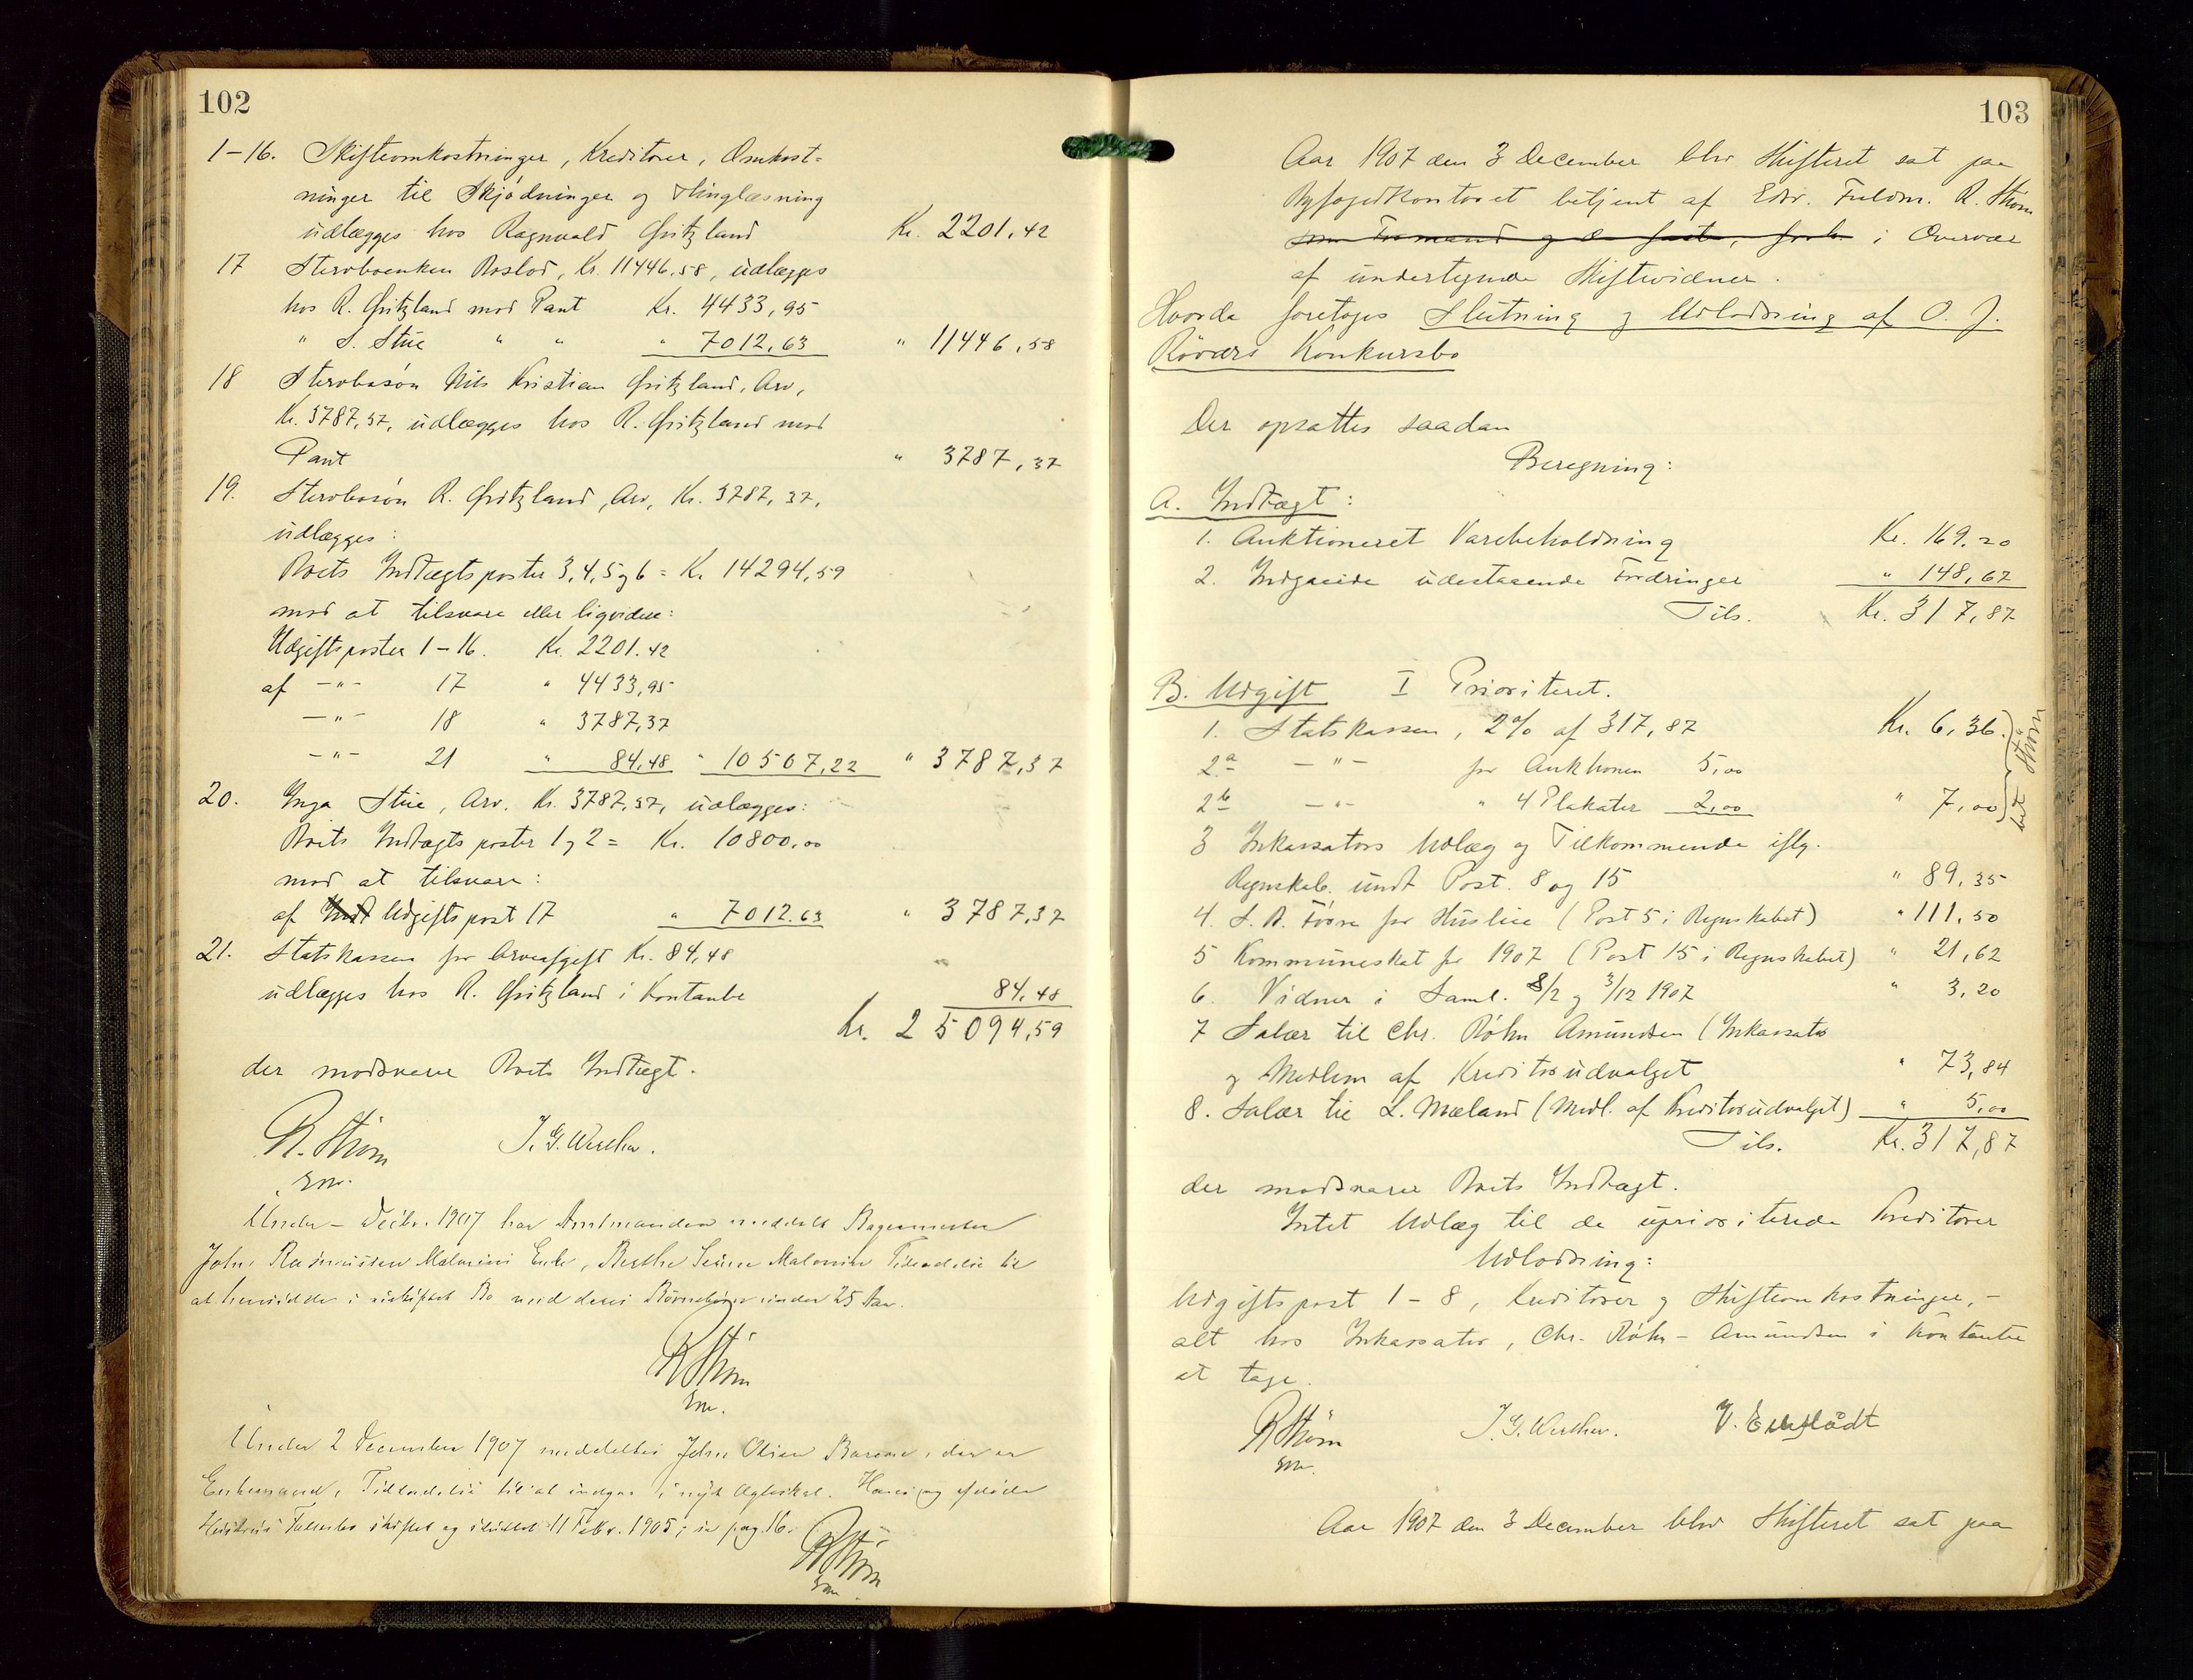 102
1-16. Skifteomkostninger, Kreditorer, Omkost=
ninger til Skjødninger og Thinglæsning
udlægges hos Ragnvald Gritzland Kr. 2201.42
17 Stervboenken Boslod, Kr. 11446,58, udlægges
hos R. Gritzland mod Pant Kr. 4433,95
" S. Stue " " " 7012,63 " 11446,58
18 Stervbosøn Nils Kristian Gritzland, Arv,
Kr. 3787,37, udlægges hos R. Gritzland mod
Pant " 3787,37
19. Stervbosøn R. Gritzland, Arv, Kr. 3787,37,
udlægges:
Boets Indtægtsposter 3,4,5 og 6 = Kr. 14294,59
mod at tilsvare eller liqvidere:
Udgiftsposter 1-16. Kr. 2201.42
af -"- 17 " 4433,95
-"- 18 " 3787,37
-"- 21 " 84,48 " 10507,22 " 3787,37
20. Inga Stue, Arv. Kr. 3787,37, udlægges:
Boets Indtægtsposter 1 og 2 = Kr. 10800,00
mod at tilsvare:
af Indt Udgiftspost 17 " 7012.63 " 3787,37
21. Statskassen for Arveafgift Kr. 84,48
udlægges hos R. Gritzland i Kontante 84,48
Kr. 25094,59
der modsvarer Boets Indtægt.
R. Strøm J. G. Werther.
Em.
Under - Decbr. 1907 har Amtmanden meddelt Bagermester
John Rasmussen Enke, Berthe Tilladelse til
at hensidde i uskiftet Bo med deres Børn under 25 Aar.
R Strøm
Em.
Under 2 December 1907 meddeltes John Olsen der er
Enkemand, Tilladelse til at indgaa i nyt Ægteskab. Hans og afdøde
Hustrus Fællesbo skiftet og sluttet 11 Febr. 1905; se pag. 16.
R Strøm
Em.
103
Aar 1907 den 3 December blev Skifteret sat paa
Byfogedkontoret betjent af Edsv. Fuldm. R. Strøm
i Overvær
af undertegnede Skiftevidner.
Hvorda foretoges Slutning og Udlodning af O. J.
Røværs Konkursbo
Der opsattes saadan
Beregning:
A. Indtægt:
1. Auktioneret Varebeholdning Kr. 169,20
2. Indgaaede udestaaende Fordringer " 148,67
Tils. Kr. 317,87
B. Udgift I Prioriteret.
1. Statskassen, 2% af 317,87 Kr. 6,36
2a -"- for Auktionen 5,00
2b -"- " 4 Plakater 2,00 " 7,00
bet Strøm
3 Inkassators Udlæg og Tilkommende iflg.
Regnskab. undt Post. 8 og 15 " 89,35
4. for Husleie (Post 5 i Regnskabet) " 111,50
5 Kommuneskat for 1907 (Post 15 i Regnskabet) " 21,62
6. Vidner i Saml. 8/2 og 3/12 1907 " 3,20
7 Salær til Chr. Røhn Amundsen (Inkassator
og Medlem af Kreditorudvalget " 73,84
8. Salær til L. Mæland (Medl. af Kreditorudvalget) " 5,00
Tils. Kr. 317,87
der modsvarer Boets Indtægt.
Intet Udlæg til de uprioriterede Kreditorer
Udlodning:
Udgiftspost 1-8, Kreditorer og Skifteomkostninger, -
alt hos Inkassator, Chr. Røhn-Amundsen i Kontante
at tage.
R Strøm J. G. Werther.
Em.
Aar 1907 den 3 December blev Skifteret sat paa